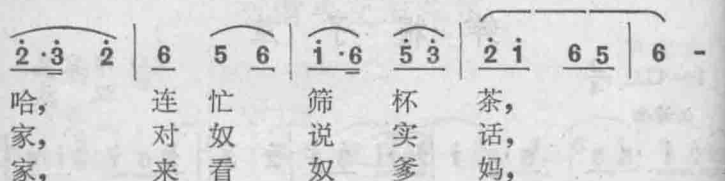 2̇·3̇ 2̇ | 6 5 6 | 1̇·6 5̇ 3̇ | 2̇ 1̇ 6 5 | 6 -
哈， 连 忙 筛 杯 茶，
家， 对 奴 说 实 话，
家， 来 看 奴 爹 妈，